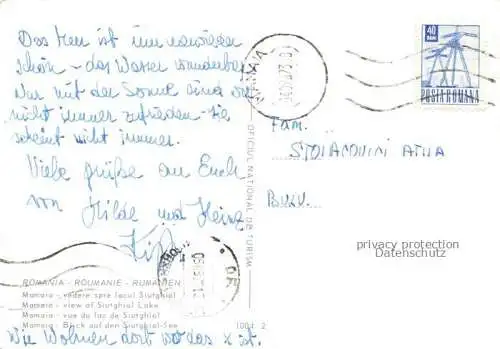 Das Meer ist immer
schön - das Wasser wunderbar
Nur mit der Sonne sind wir
nicht immer zufrieden - sie
scheint nicht immer.
Viele Grüße an Euch
von Hilde und Heinz
40
BANI
POSTA ROMANA
MAMAIA
Fam.
BUZU.
OFICIUL NATIONAL DE TURISM
privacy protection
Datenschutz
ROMANIA - ROUMANIE - RUMÄNIEN
Mamaia - vedere spre lacul Siutghiol
Mamaia - view of Siutghiol Lake
Mamaia - vue du lac de Siutghiol
Mamaia - Blick auf den Siutghiol-See
1001 2
Wir Wohnen dort wo das x ist.